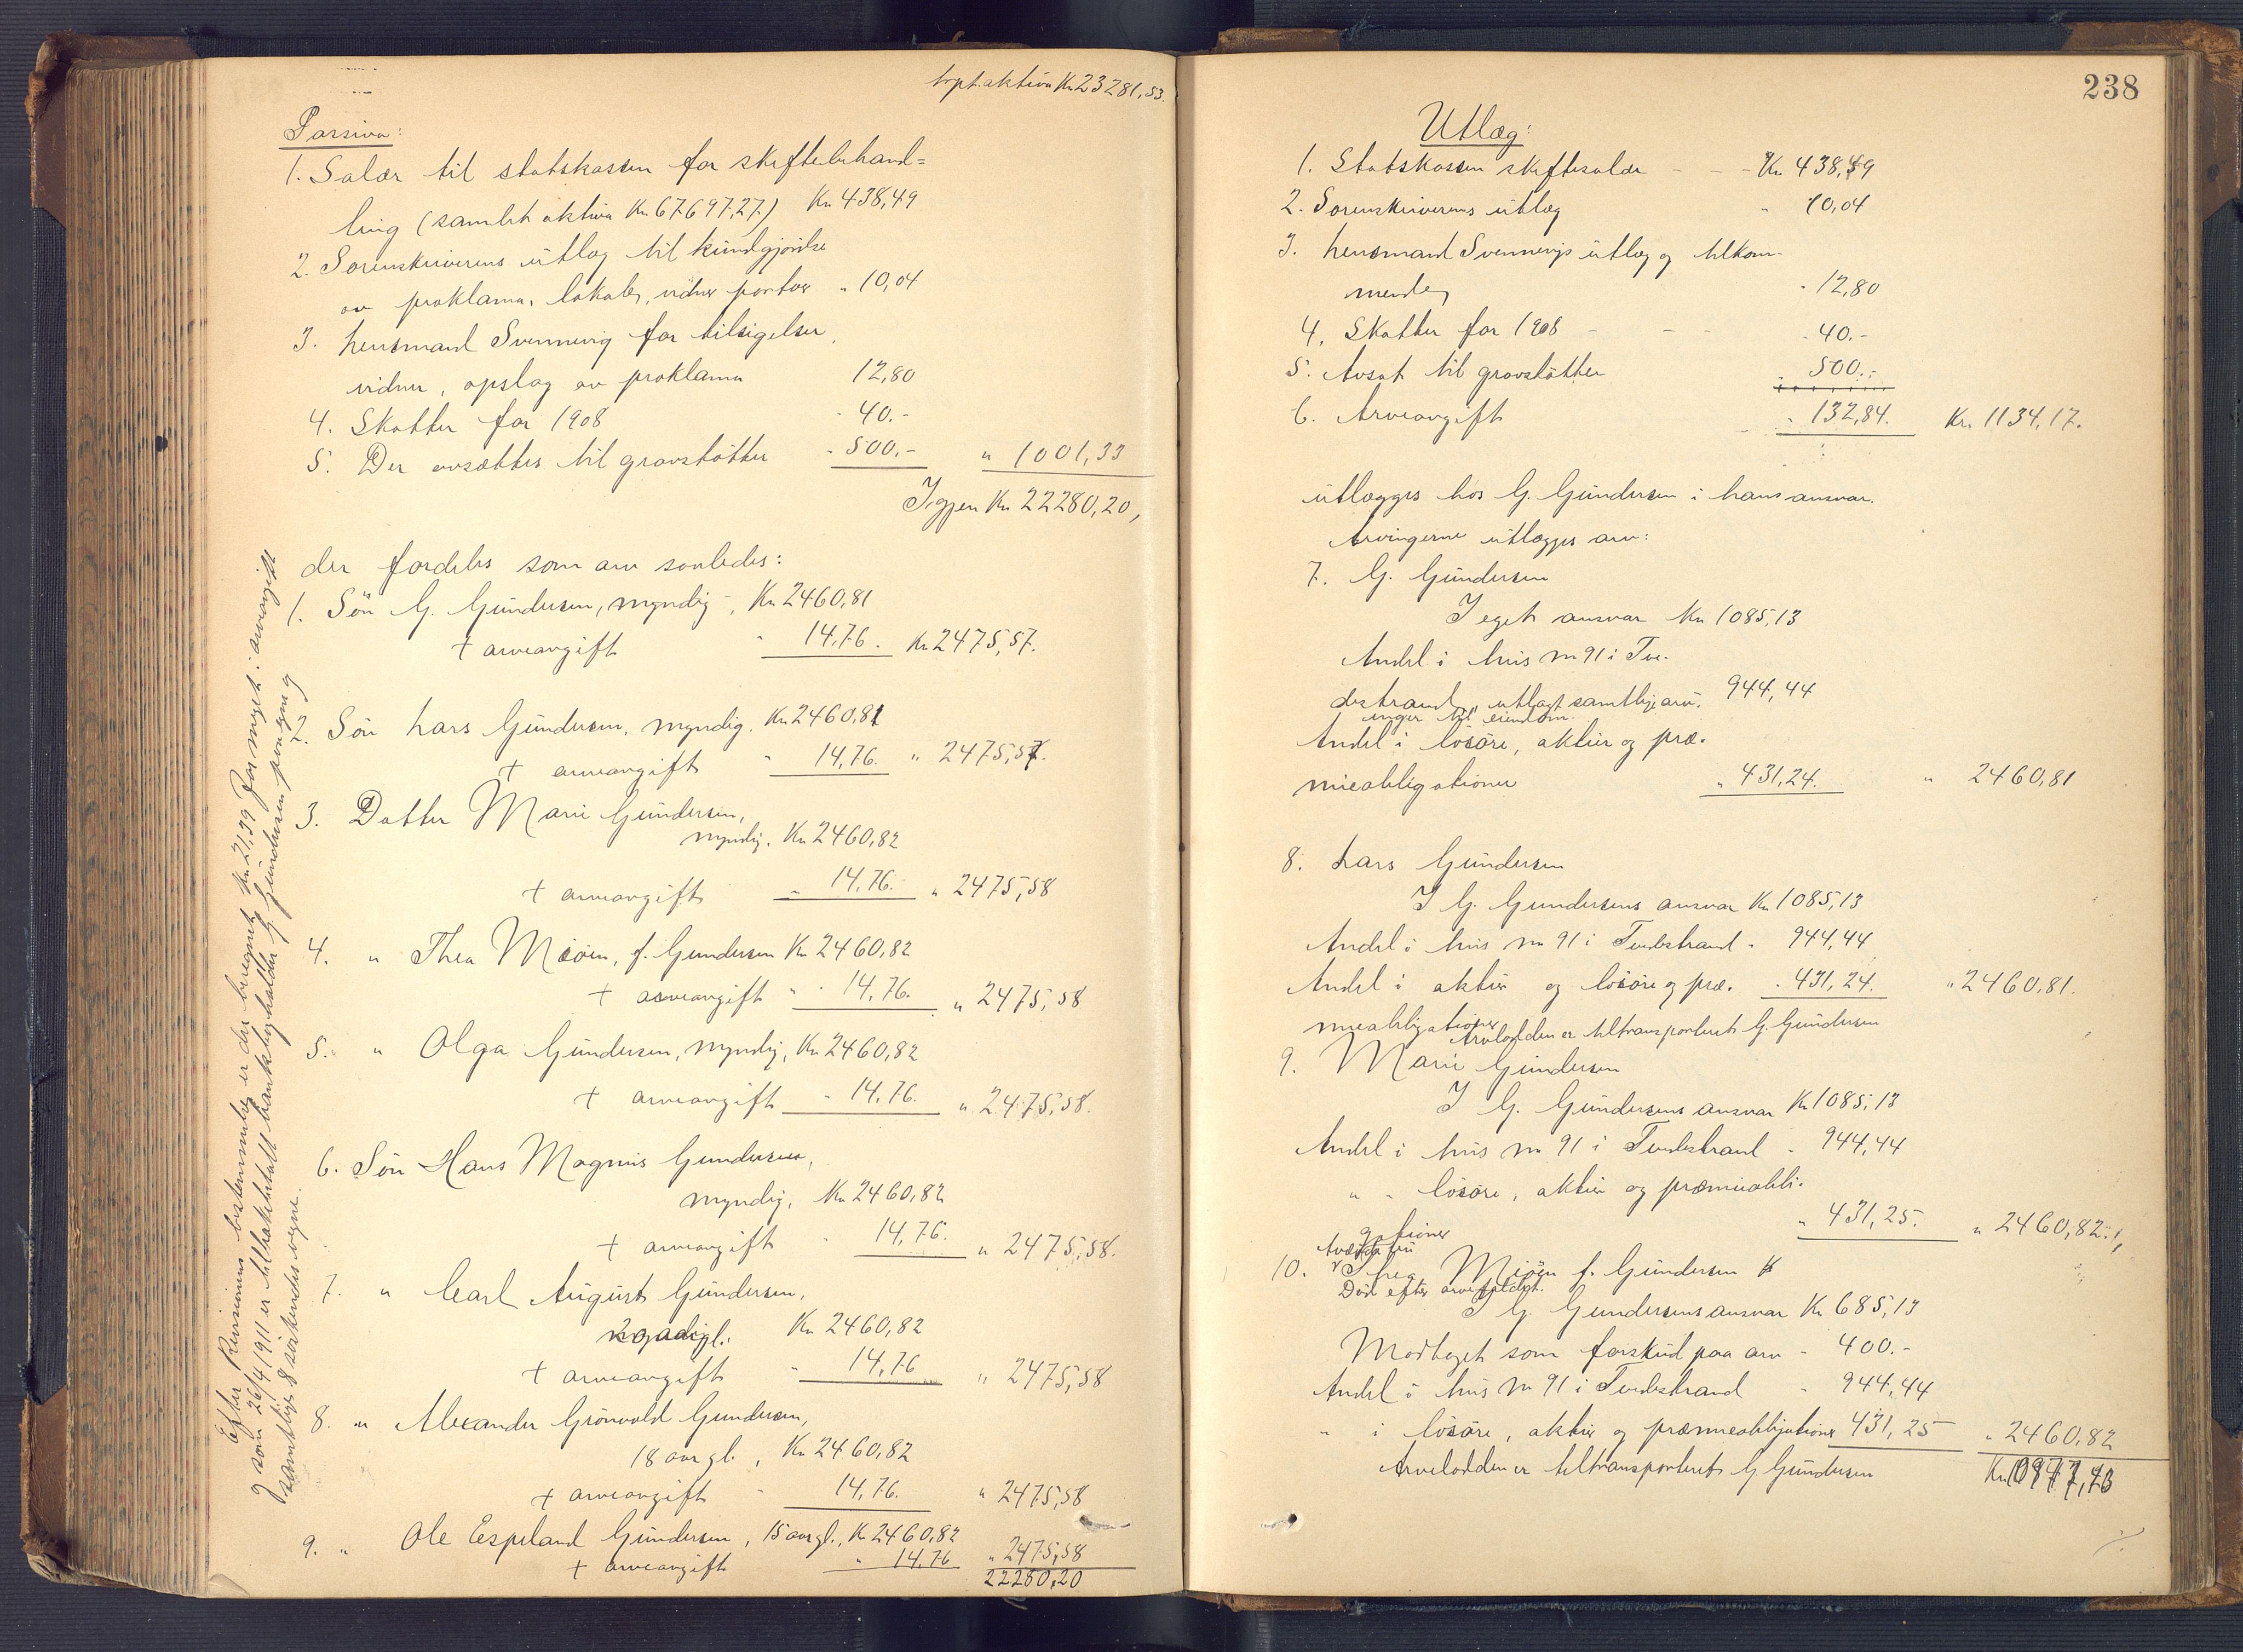 trpt. aktiva Kr 23281,53.
Passiva:
1. Salær til statskassen for skiftebehand=
ling (samlet aktiva Kr 67697,27.) Kr 438,49
2. Sorenskriverens utlæg til kundgjørelse
av proklama, lokale, vidner portoer " 10,04
3. Lensmand Svennevig for tilsigelser,
vidner, opslag av proklama 12,80
4. Skatter for 1908 - 40.-
5. Der avsættes til gravstøtter - 500.- " 1001,33
Igjen Kr 22280,20,
der fordeles som arv saaledes:
1. Søn G. Gundersen, myndig, Kr 2460,81
+ arveavgift " 14,76. Kr 2475,57.
2. Søn Lars Gundersen, myndig. Kr 2460,81
+ arveavgift " 14,76. " 2475,57.
3. Datter Marie Gundersen,
myndig. Kr 2460,82
+ arveavgift " 14,76. " 2475,58
4. " Thea Miöen, f. Gundersen Kr 2460,82
+ arveavgift " 14,76. " 2475,58
5. " Olga Gundersen, myndig, Kr 2460,82
+ arveavgift " 14,76. " 2475,58.
6. Søn Hans Magnus Gundersen,
myndig, Kr 2460,82
+ arveavgift " 14,76. " 2475,58.
7. " Carl August Gundersen,
20 aar gl. Kr 2460,82
+ arveavgift " 14,76 " 2475,58
8. " Alexander Grönvold Gundersen,
18 aar gl., Kr 2460,82
+ arveavgift - 14,76. " 2475,58
9. " Ole Espeland Gundersen, 15 aar gl., Kr 2460,82
+ arveavgift " 14,76 " 2475,58
22280,20
Efter Revisionens bestemmelse er der beregnet Kr 21,39 for meget i arveavgift
som 26/4 1911 er tilbakebetalt bankbestyr G. Gundersen paa egne og
samtlige 8 søskendes vegne.
238
Utlæg:
1. Statskassen skiftesalær - - - Kr 438,49
2. Sorenskriverens utlæg " 10,04
3. Lensmand Svennevigs utlæg og tilkom-
mende - 12,80
4. Skatter for 1908 - - - - 40.-
5. Avsat til gravstøtter - 500.-
6. Arveavgift " 132,84. Kr. 1134,17.
utlægges hos G. Gundersen i hans ansvar.
Arvingerne utlægges arv:
7. G. Gundersen
I eget ansvar Kr 1085,13
Andel i hus nr 91 i Tve-
destrand, utlagt samtlige arv- 944,44
inger til eiendom.
Andel i løsøre, aktier og præ-
mieobligationer " 431,24. " 2460,81
8. Lars Gundersen
I G. Gundersens ansvar Kr 1085,13
Andel i hus nr 91 i Tvedestrand - 944,44
Andel i aktier og løsøre og præ- - 431,24. " 2460,81.
mieobligationer
Arvelodden er tiltransporteret G. Gundersen
9. Marie Gundersen
I G. Gundersens ansvar Kr 1085,13
Andel i hus nr 91 i Tvedestrand - 944,44
" " løsøre, aktier og præmieobli-
gationer " 431,25. " 2460,82.
10. Thea Miöen f. Gundersen
Død efter arvefaldet.
I G. Gundersens ansvar Kr 685,13
Mottaget som forskud paa arv - 400.-
Andel i hus nr 91 i Tvedestrand - 944,44
" i løsøre, aktier og præmieobligationer 431,25 " 2460,82
Arvelodden er tiltransporteret G Gundersen